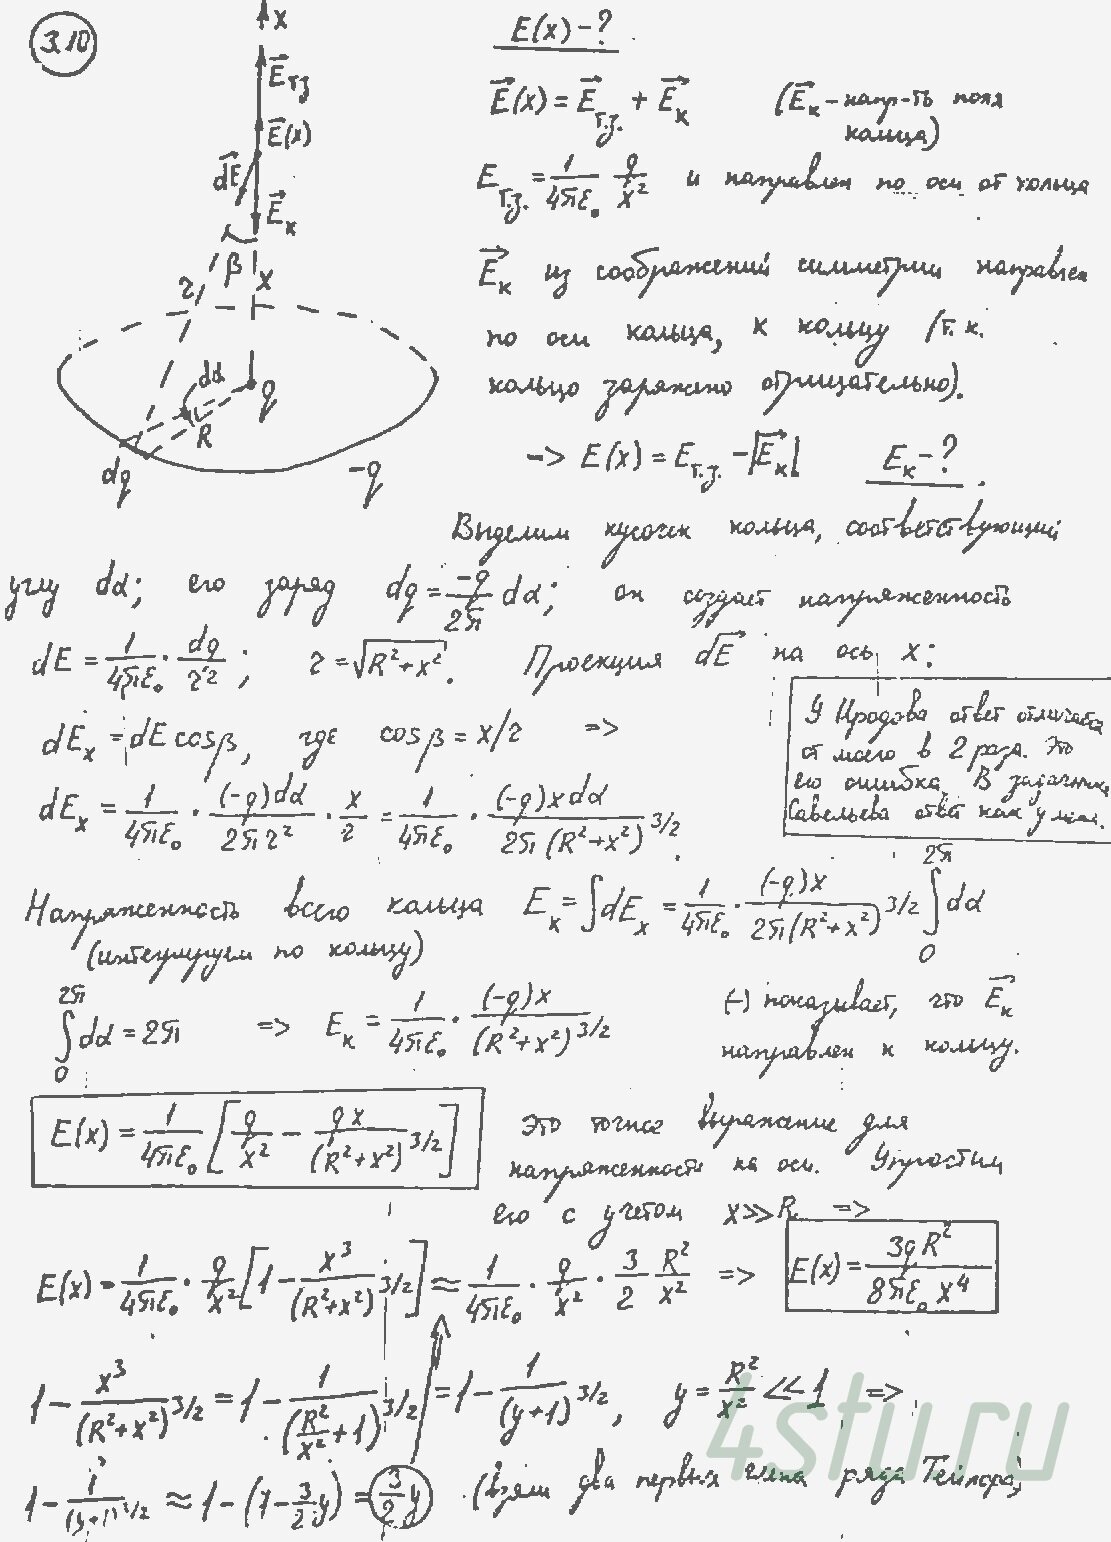 3.10
x
E⃗т.з
E⃗(x)
dE⃗
E⃗к
β
x
r
dα
R
q
dq
-q
E(x) - ?
E⃗(x) = E⃗т.з. + E⃗к (E⃗к - напр-ть поля кольца)
Eт.з. = 1/(4πε₀) q/x² и направлен по оси от кольца
E⃗к из соображений симметрии направлен
по оси кольца, к кольцу (т.к.
кольцо заряжено отрицательно).
=> E(x) = Eт.з. - |E⃗к| Eк - ?
Выделим кусочек кольца, соответствующий
углу dα; его заряд dq = -q/(2π) dα; он создает напряженность
dE = 1/(4πε₀) · dq/r²; r = √(R²+x²). Проекция dE⃗ на ось x:
dEx = dE cosβ, где cosβ = x/r =>
dEx = 1/(4πε₀) · (-q)dα/(2πr²) · x/r = 1/(4πε₀) · (-q)x dα/(2π(R²+x²)^3/2).
У Иродова ответ отличается
от моего в 2 раза. Это
его ошибка. В задачнике
Савельева ответ как у меня.
Напряженность всего кольца Eк = ∫dEx = 1/(4πε₀) · (-q)x/(2π(R²+x²)^3/2) ∫₀^2π dα
(интегрируем по кольцу)
∫₀^2π dα = 2π => Eк = 1/(4πε₀) · (-q)x/(R²+x²)^3/2
(-) показывает, что E⃗к
направлен к кольцу.
E(x) = 1/(4πε₀) [q/x² - qx/(R²+x²)^3/2]
Это точное выражение для
напряженности на оси. Упростим
его с учетом x≫R =>
E(x) = 1/(4πε₀) · q/x² [1 - x³/(R²+x²)^3/2] ≈ 1/(4πε₀) · q/x² · 3/2 R²/x² => E(x) = 3qR²/(8πε₀x⁴)
1 - x³/(R²+x²)^3/2 = 1 - 1/(R²/x²+1)^3/2 = 1 - 1/(y+1)^3/2, y = R²/x² ≪ 1 =>
1 - 1/(y+1)^3/2 ≈ 1 - (1 - 3/2 y) = 3/2 y (взяли два первых члена ряда Тейлора)
4stu.ru